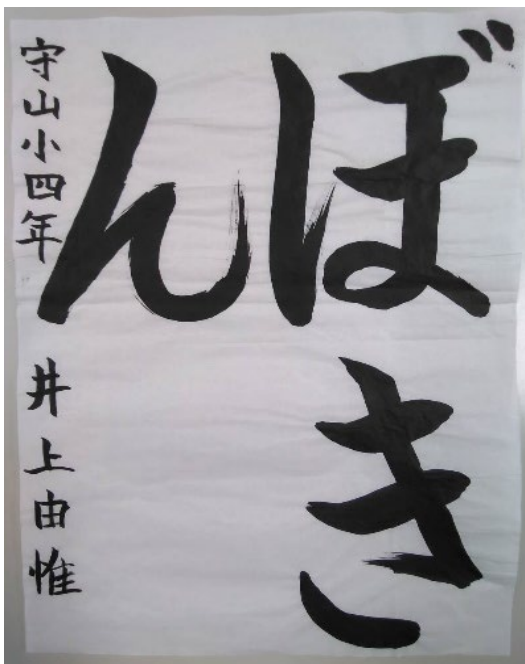 ぼき
ん
守山小四年 井上由惟